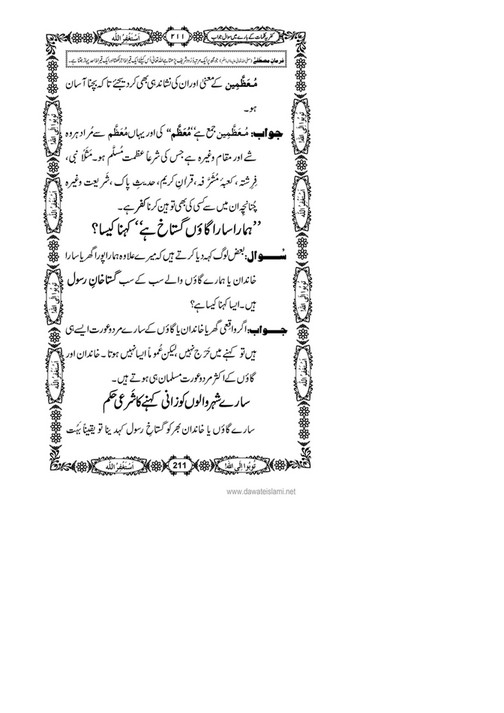 کفریہ کلمات کے بارے میں سوال جواب
۲۱۱
اَسْتَغْفِرُ اللّٰه
فرمانِ مصطفٰے
مُعَظَّمِین کے معنیٰ اور ان کی نشاندہی بھی کر دیجئے تا کہ بچنا آسان
ہو۔
جواب: مُعَظَّمِین جمع ہے ”مُعَظَّم“ کی اور یہاں مُعَظَّم سے مُراد ہر وہ
شے اور مقام وغیرہ ہے جس کی شرعاً عظمت مُسلَّم ہو۔ مَثَلاً نبی،
فِرِشتہ، کعبۂ مُشَرَّفہ، قرانِ کریم، حدیثِ پاک، شریعت وغیرہ
چُنانچِہ ان میں سے کسی کی بھی توہین کرنا کفر ہے۔
”ہمارا سارا گاؤں گستاخ ہے“ کہنا کیسا؟
سُوال: بعض لوگ کہہ دیا کرتے ہیں کہ میرے علاوہ ہمارا پورا گھر یا سارا
خاندان یا ہمارے گاؤں والے سب کے سب گستاخانِ رسول
ہیں۔ ایسا کہنا کیسا ہے؟
جواب: اگر واقعی گھر یا خاندان یا گاؤں کے سارے مرد و عورت ایسے ہی
ہیں تو کہنے میں حَرَج نہیں، لیکن عُموماً ایسا نہیں ہوتا۔ خاندان اور
گاؤں کے اکثر مرد و عورت مسلمان ہی ہوتے ہیں۔
سارے شہر والوں کو زانی کہنے کا شَرعی حکم
سارے گاؤں یا خاندان بھر کو گستاخِ رسول کہہ دینا تو یقیناً بَہُت
تُوبُوا اِلَی اللّٰه
211
اَسْتَغْفِرُ اللّٰه
www.dawateislami.net